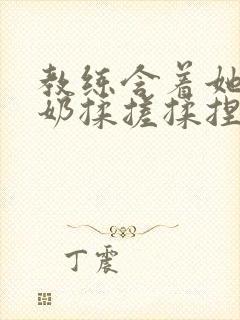 教练含着她
奶揉搓揉捏
丁震